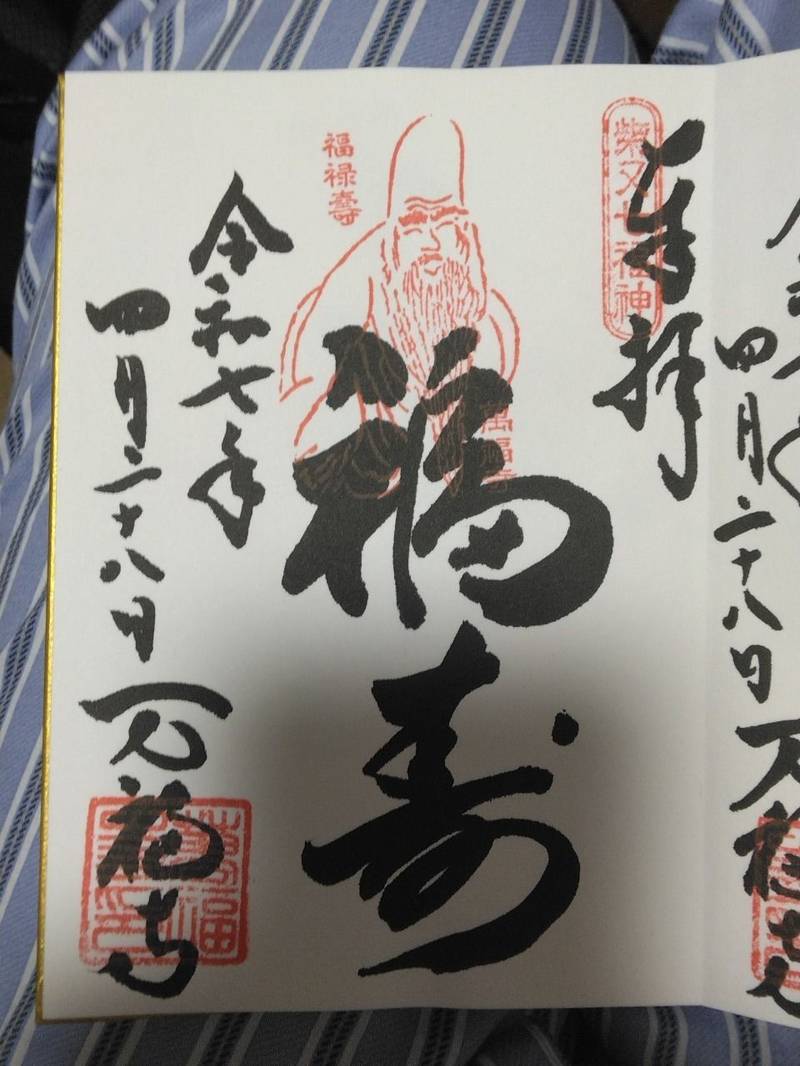 柴又七福神
奉拝
福禄壽
萬福寺
福寿
令和七年
四月二十八日
万福寺
四月二十八日